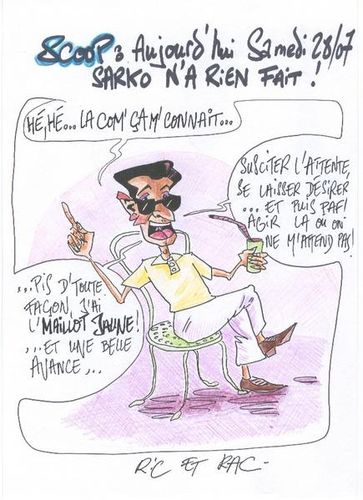 SCOOP : Aujourd'hui Samedi 28/07
SARKO N'A RIEN FAIT !
HÉ, HÉ... LA COM' ÇA M'CONNAIT...
SUSCITER L'ATTENTE,
SE LAISSER DÉSIRER
... ET PUIS PAF !
AGIR LÀ OÙ ON
NE M'ATTEND PAS !
...PIS D'TOUTE
FAÇON, J'AI
L'MAILLOT JAUNE !
...ET UNE BELLE
AVANCE...
RIC ET RAC -